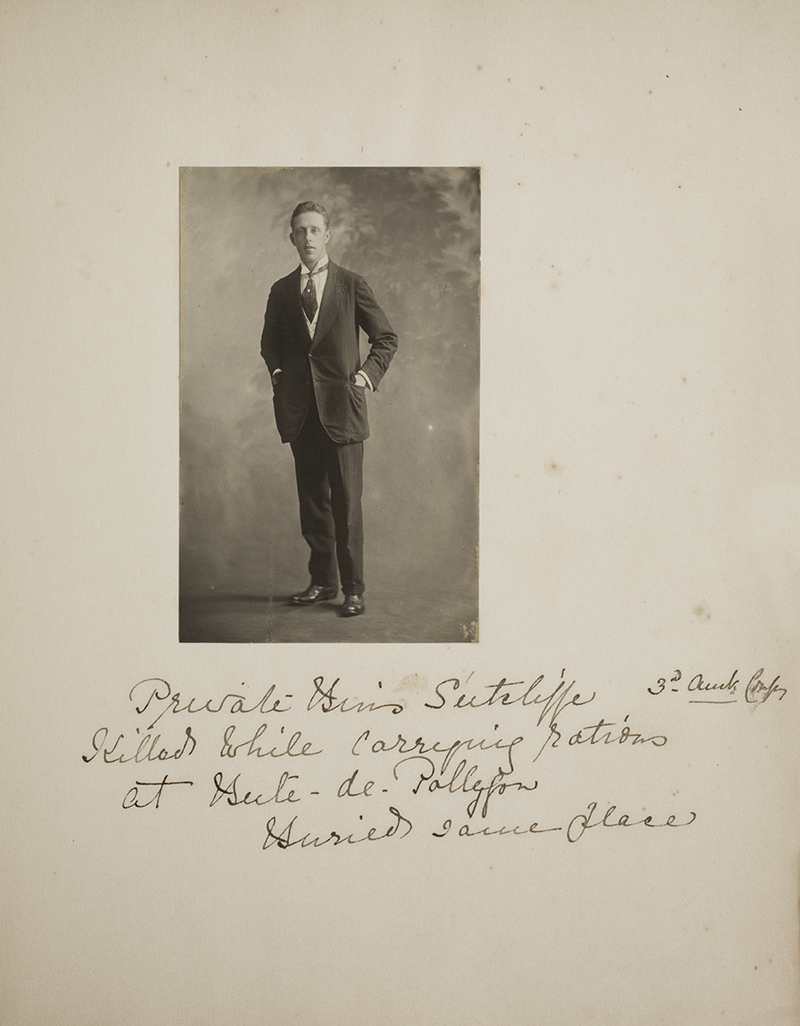 Private Sutcliffe 3rd Auck
Killed While Carrying rations
at Bute-de-Pollygon
Buried same place